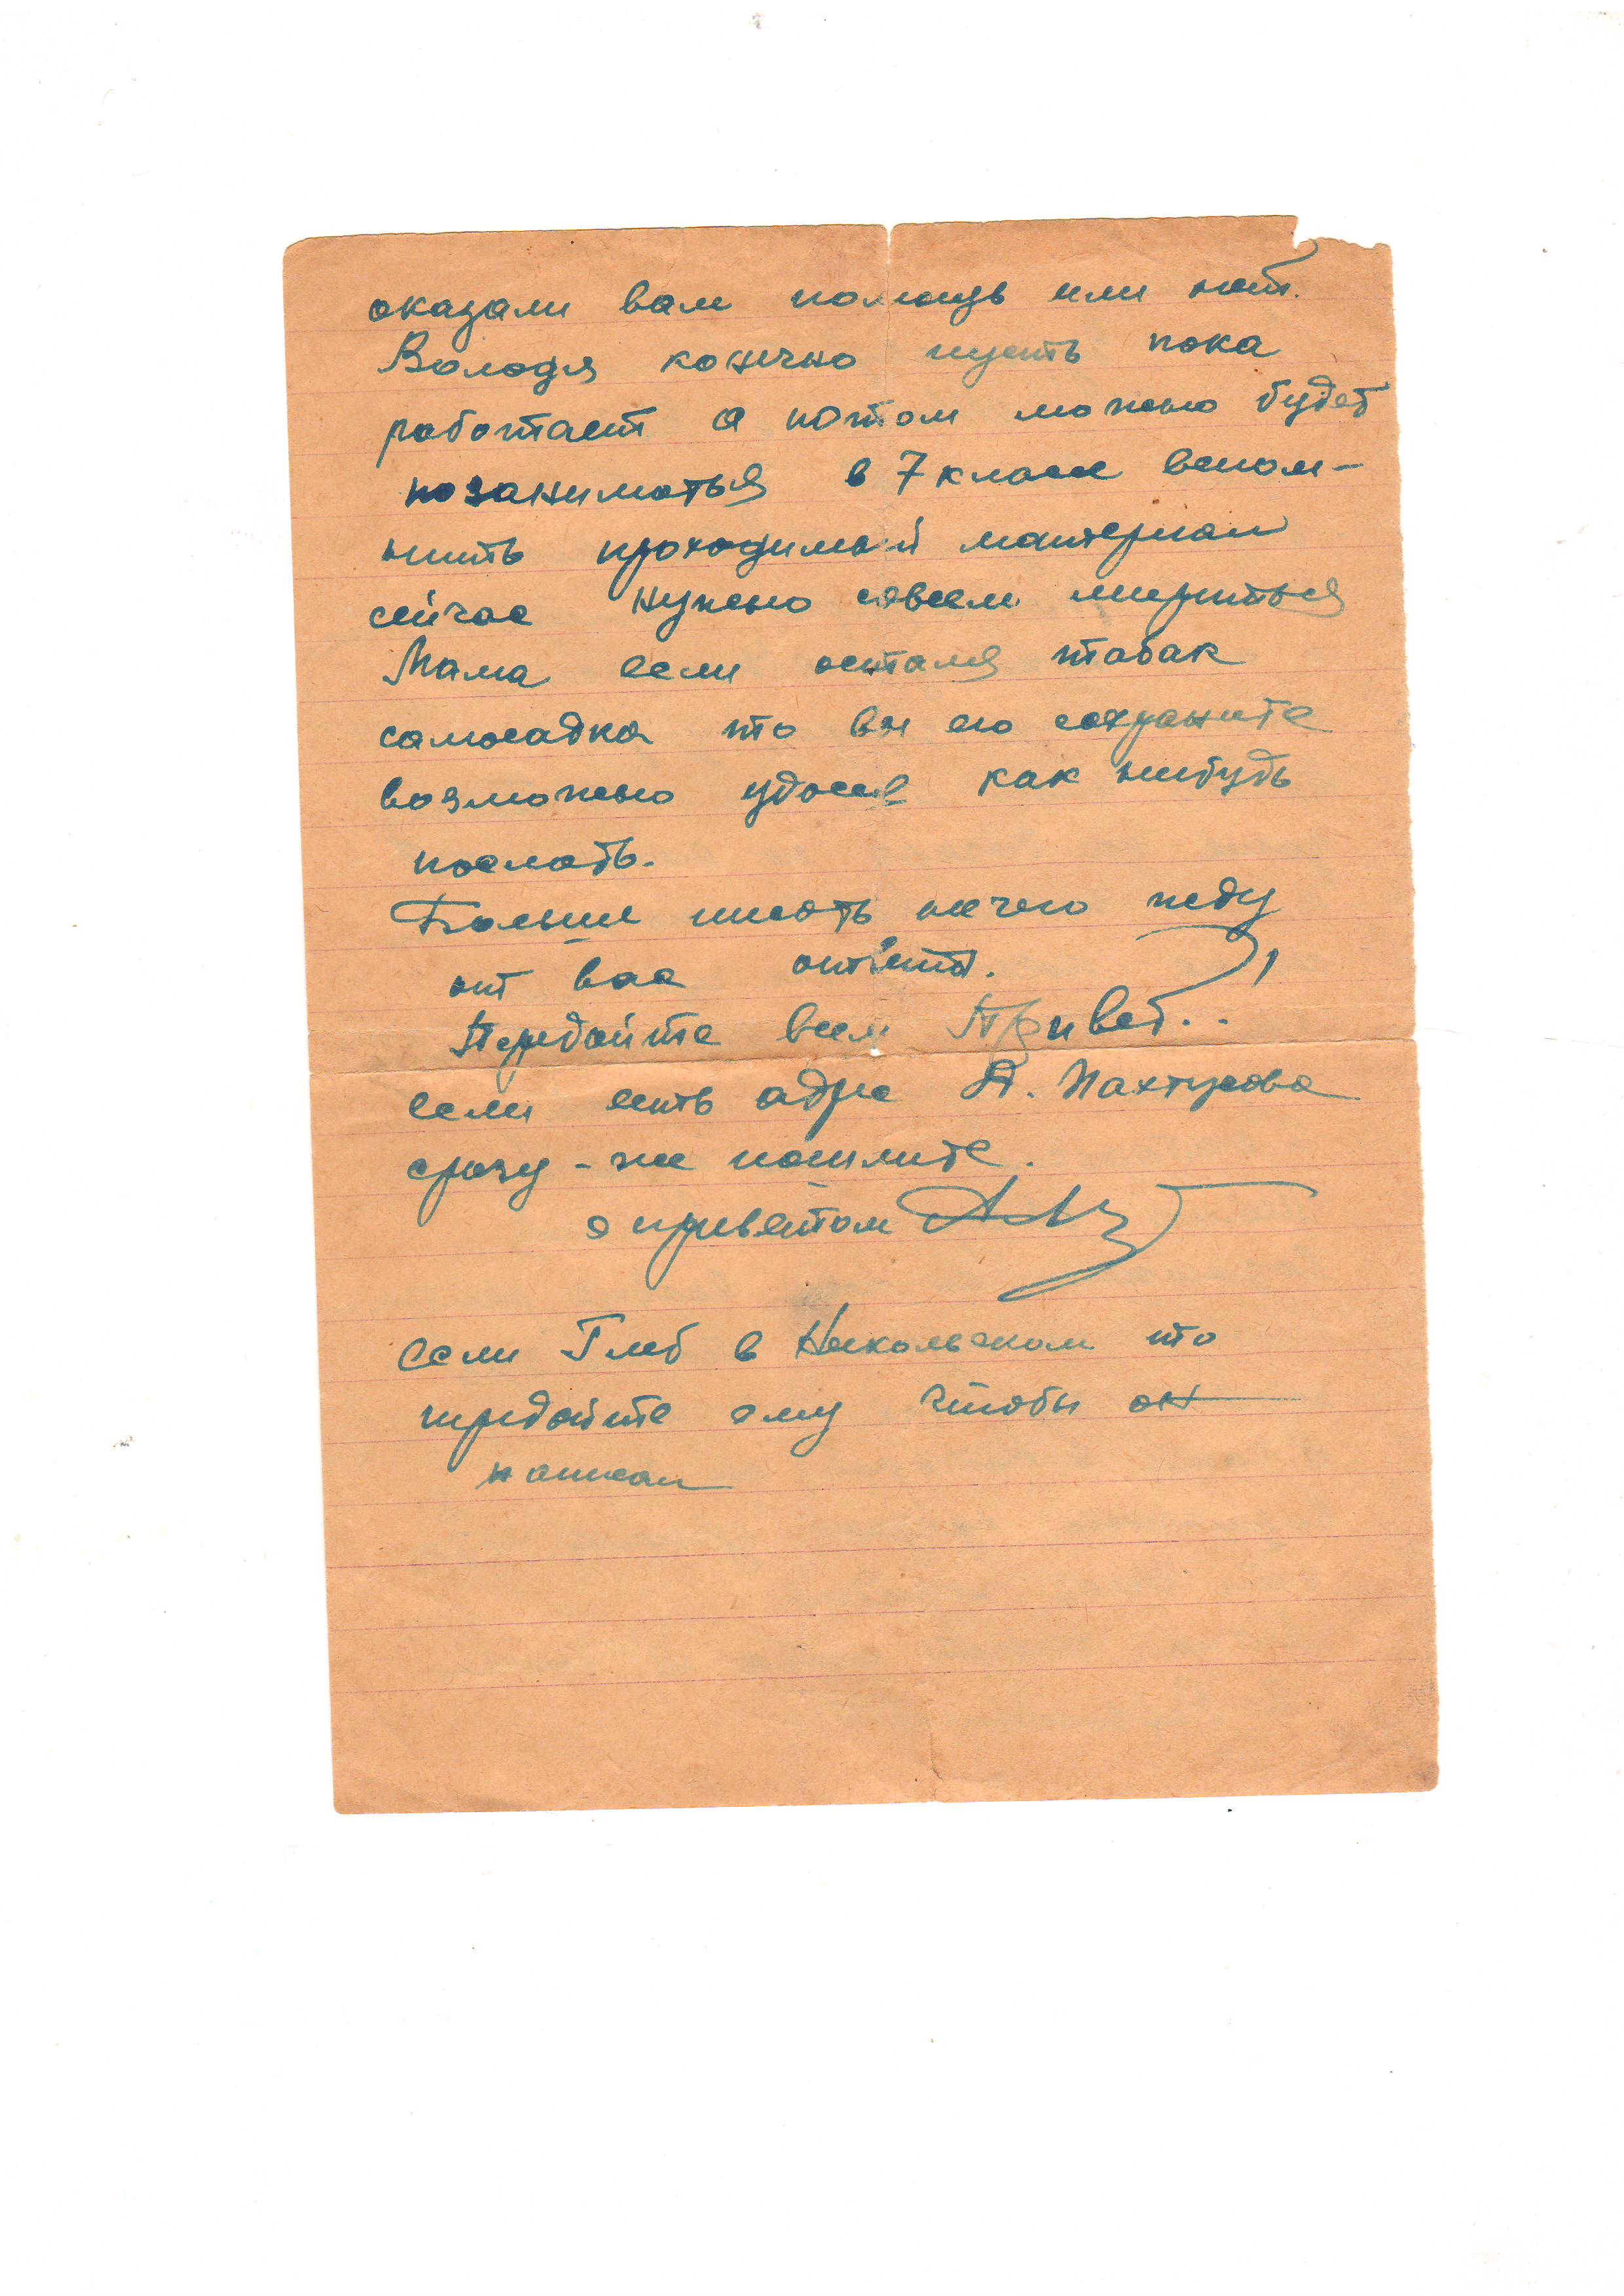 оказали вам помощь или нет.
Володя конечно пусть пока
работает а потом можно будет
позаниматься в 7 классе вспом-
нить проходимый материал
сейчас нужно совсем мириться
Мама если остался табак
самосадка то вы его сохраните
возможно удасся как нибудь
послать.
Больше писать нечего жду
от вас ответа.
Передайте всем Привет..
если есть адрес А. Пахтусова
сразу-же пошлите.
с приветом
если Глеб в Никольском то
передайте ему чтобы он
написал